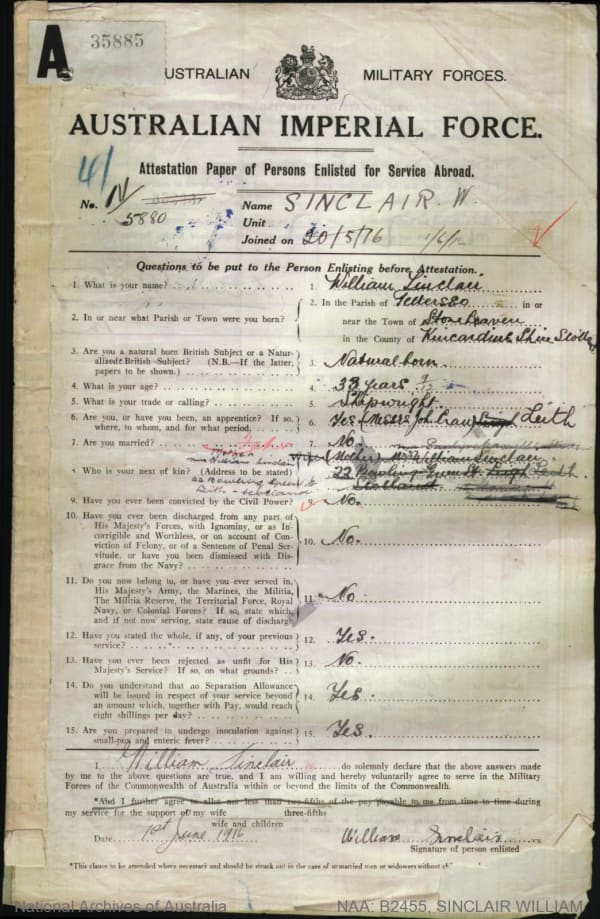 A
35885
AUSTRALIAN MILITARY FORCES.
AUSTRALIAN IMPERIAL FORCE.
Attestation Paper of Persons Enlisted for Service Abroad.
41
No. N/5880
Name SINCLAIR. W.
Unit
Joined on 20/5/16 1/6/16
Questions to be put to the Person Enlisting before Attestation.
1. What is your name? 1. William Sinclair
2. In or near what Parish or Town were you born? 2. In the Parish of in or
near the Town of Stonehaven
in the County of Kincardine Shire Scotland
3. Are you a natural born British Subject or a Natur-
alized British Subject? (N.B.—If the latter,
papers to be shown.) 3. Natural born.
4. What is your age? 4. 38 years
5. What is your trade or calling? 5. Shipwright
6. Are you, or have you been, an apprentice? If so,
where, to whom, and for what period. 6. Yes (Messrs John Cran Leith
7. Are you married? 7. No.
Father
Mother
Mrs William Sinclair
8. Who is your next of kin? (Address to be stated) Mother Mrs William Sinclair
22 Bowling Green St Leith
22 Bowling Green St
Leith - Scotland
Scotland
9. Have you ever been convicted by the Civil Power? 9. No.
10. Have you ever been discharged from any part of
His Majesty's Forces, with Ignominy, or as In-
corrigible and Worthless, or on account of Con-
viction of Felony, or of a Sentence of Penal Ser-
vitude, or have you been dismissed with Dis-
grace from the Navy? 10. No.
11. Do you now belong to, or have you ever served in,
His Majesty's Army, the Marines, the Militia,
The Militia Reserve, the Territorial Force, Royal
Navy, or Colonial Forces? If so, state which,
and if not now serving, state cause of discharge 11. No
12. Have you stated the whole, if any, of your previous
service? 12. Yes.
13. Have you ever been rejected as unfit for His
Majesty's Service? If so, on what grounds? 13. No.
14. Do you understand that no Separation Allowance
will be issued in respect of your service beyond
an amount which, together with Pay, would reach
eight shillings per day? 14. Yes.
15. Are you prepared to undergo inoculation against
small-pox and enteric fever? 15. Yes.
I, William Sinclair do solemnly declare that the above answers made
by me to the above questions are true, and I am willing and hereby voluntarily agree to serve in the Military
Forces of the Commonwealth of Australia within or beyond the limits of the Commonwealth.
*And I further agree to allot not less than two-fifths of the pay payable to me from time to time during
my service for the support of my wife three-fifths
wife and children
Date 1st June 1916 William Sinclair
Signature of person enlisted
*This clause to be amended where necessary and should be struck out in the case of unmarried men or widowers without ch
National Archives of Australia NAA: B2455, SINCLAIR WILLIAM